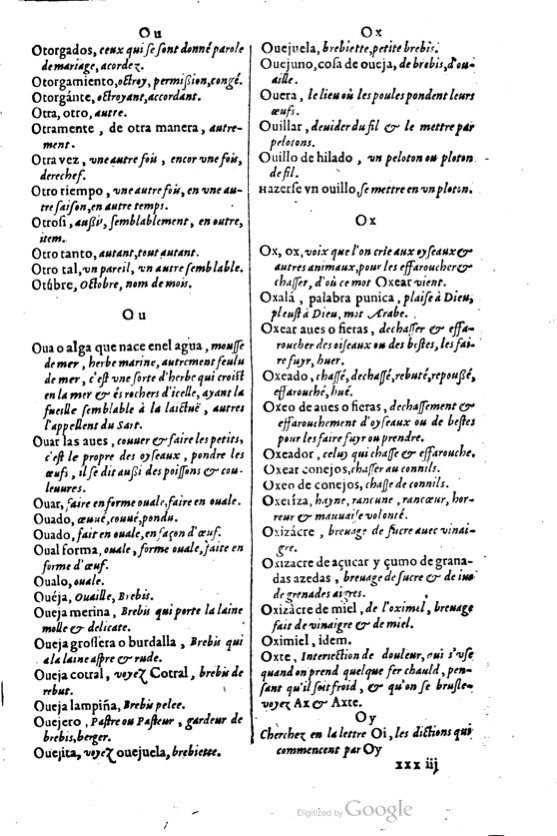 Ou
Otorgados, ceux qui se sont donné parole
de mariage, acordez.
Otorgamiento, octroy, permission, congé.
Otorgánte, octroyant, accordant.
Otra, otro, autre.
Otramente, de otra manera, autre-
ment.
Otra vez, vne autre fois, encor vne fois,
derechef.
Otro tiempo, vne autre fois, en vne au-
tre saison, en autre temps.
Otrosi, aussi, semblablement, en outre,
item.
Otro tanto, autant, tout autant.
Otro tal, vn pareil, vn autre semblable.
Otúbre, Octobre, nom de mois.
Ou
Oua o alga que nace enel agua, mousse
de mer, herbe marine, autrement feulu
de mer, c'est vne sorte d'herbe qui croist
en la mer & és rochers d'icelle, ayant la
fueille semblable à la laictuë, autres
l'appellent du Sart.
Ouar las aues, couuer & faire les petits,
c'est le propre des oyseaux, pondre les
œufs, il se dit aussi des poissons & cou-
leuures.
Ouar, faire en forme ouale, faire en ouale.
Ouado, œuué, couué, pondu.
Ouado, fait en ouale, en façon d'œuf.
Oual forma, ouale, forme ouale, faite en
forme d'œuf.
Oualo, ouale.
Ouéja, Ouaille, Brebis.
Oueja merina, Brebis qui porte la laine
molle & delicate.
Oueja grossera o burdalla, Brebis qui
a la laine aspre & rude.
Oueja cotral, voyez Cotral, brebis de
rebut.
Oueja lampiña, Brebis pelee.
Ouejero, Pastre ou Pasteur, gardeur de
brebis, berger.
Ouejita, voyez ouejuela, brebiette.
Ox
Ouejuela, brebiette, petite brebis.
Ouejuno, cosa de oueja, de brebis, d'ou-
aille.
Ouera, le lieu où les poules pondent leurs
œufs.
Ouillar, deuider du fil & le mettre par
pelotons.
Ouillo de hilado, vn peloton ou ploton
de fil.
Hazerse vn ouillo, se mettre en vn ploton.
Ox
Ox, ox, voix que l'on crie aux oyseaux &
autres animaux, pour les effaroucher &
chasser, d'où ce mot Oxear vient.
Oxalá, palabra punica, plaise à Dieu,
pleust à Dieu, mot Arabe.
Oxear aues o fieras, dechasser & effa-
roucher des oiseaux ou des bestes, les fai-
re fuyr, huer.
Oxeado, chassé, dechassé, rebuté, repoussé,
effarouché, hué.
Oxeo de aues o fieras, dechassement &
effarouchement d'oyseaux ou de bestes
pour les faire fuyr ou prendre.
Oxeador, celuy qui chasse & effarouche.
Oxear conejos, chasser au connils.
Oxeo de conejos, chasse de connils.
Oxeriza, hayne, rancune, rancœur, hor-
reur & mauuaise volonté.
Oxizácre, breuage de sucre auec vinai-
gre.
Osizacre de açucar y çumo de grana-
das azedas, breuage de sucre & de ius
de grenades aigres.
Oxizàcre de miel, de l'oximel, breuage
fait de vinaigre & de miel.
Oximiel, idem.
Oxte, Interiection de douleur, qui s'vse
quand on prend quelque fer chauld, pen-
sant qu'il soit froid, & qu'on se brusle
voyez Ax & Axte.
Oy
Cherchez en la lettre Oi, les dictions qui
commencent par Oy
xxx iij
Digitized by Google